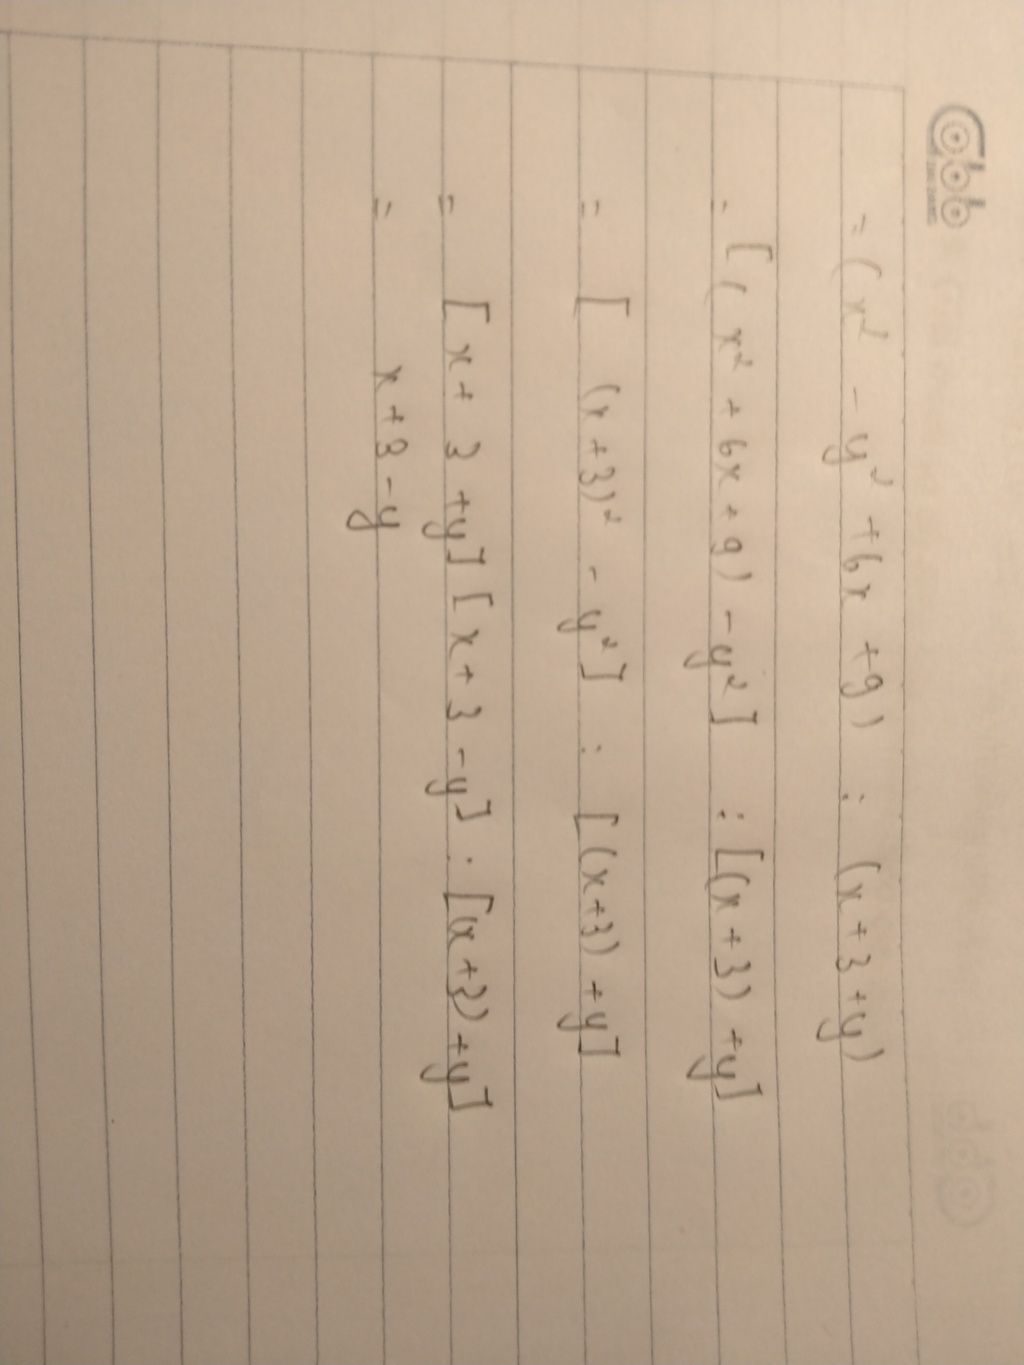 Cobb
= (x² - y² + 6x + 9) : (x + 3 + y)
= [(x² + 6x + 9) - y²] : [(x + 3) + y]
= [(x + 3)² - y²] : [(x + 3) + y]
= [x + 3 + y] [x + 3 - y] : [(x + 3) + y]
= x + 3 - y